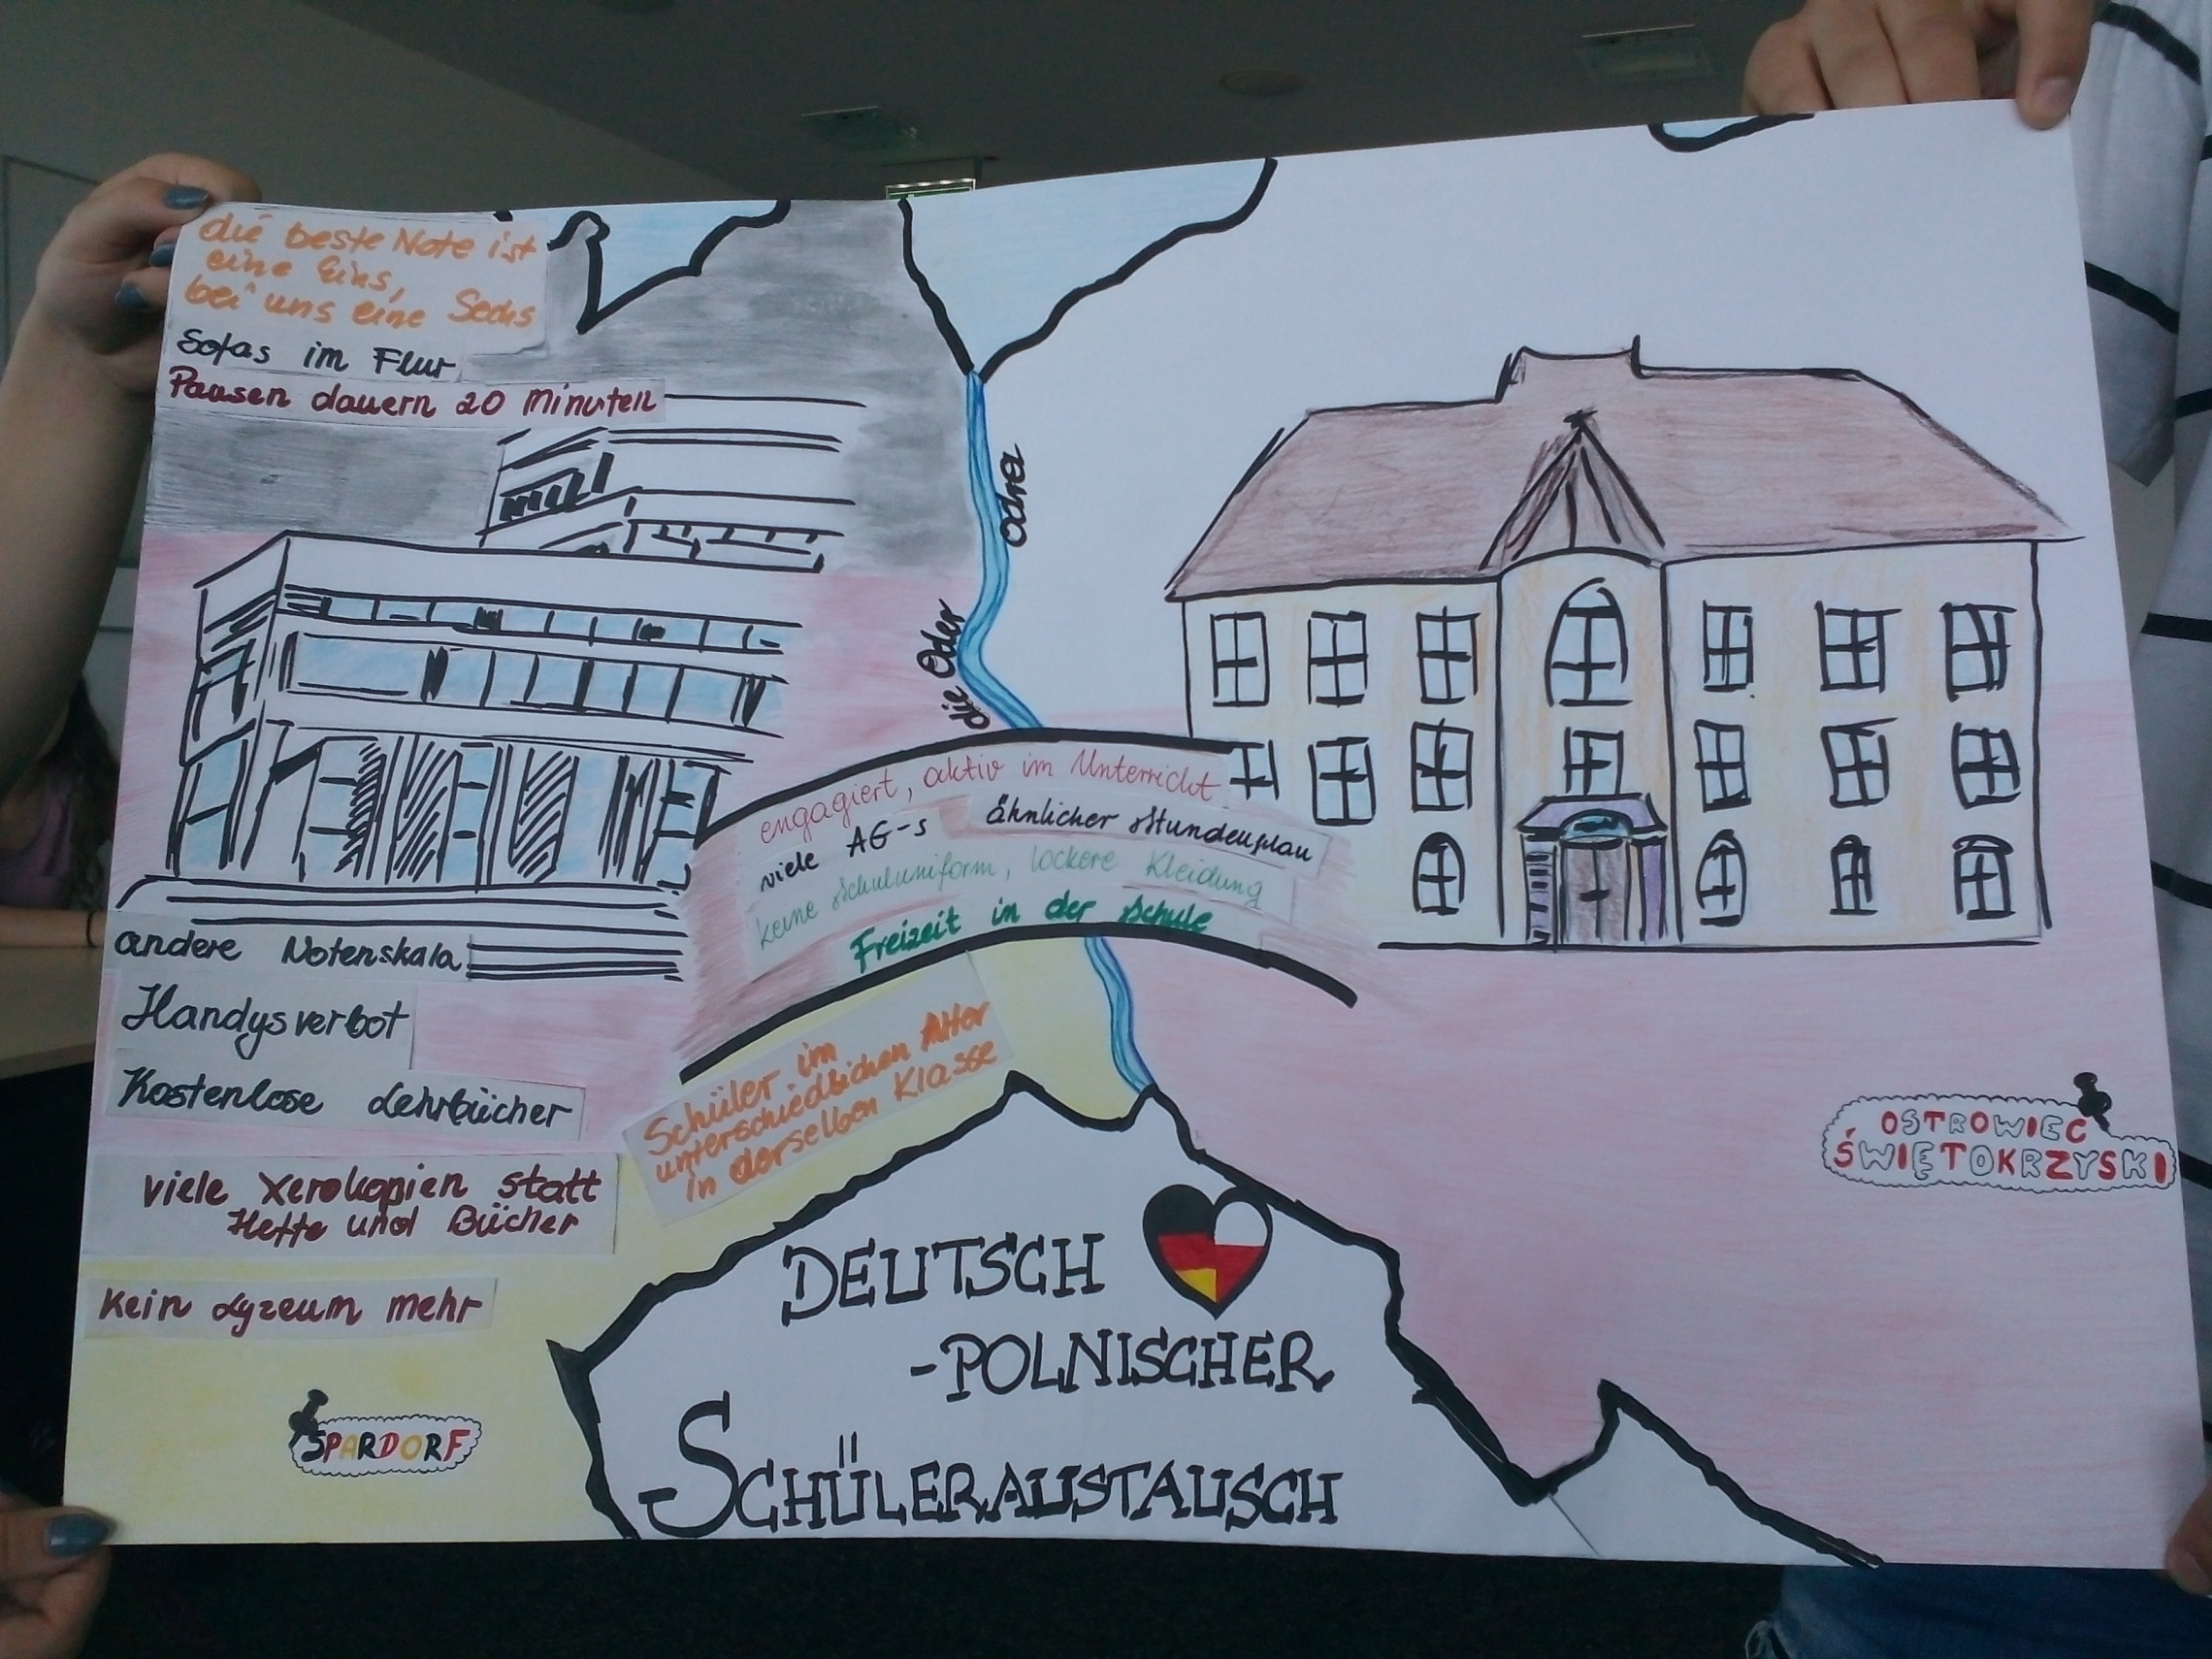 die beste Note ist
eine Eins,
bei uns eine Sechs
Sofas im Flur
Pausen dauern 20 Minuten
Odra
die Oder
engagiert, aktiv im Unterricht
viele AG-s
ähnlicher Stundenplan
keine Schuluniform, lockere Kleidung
Freizeit in der Schule
andere Notenskala
Handysverbot
Kostenlose Lehrbücher
Schüler im
unterschiedlichen Alter
in derselben Klasse
viele Xerokopien statt
Hefte und Bücher
Kein Lyzeum mehr
SPARDORF
OSTROWIEC
ŚWIĘTOKRZYSKI
DEUTSCH
-POLNISCHER
SCHÜLERAUSTAUSCH